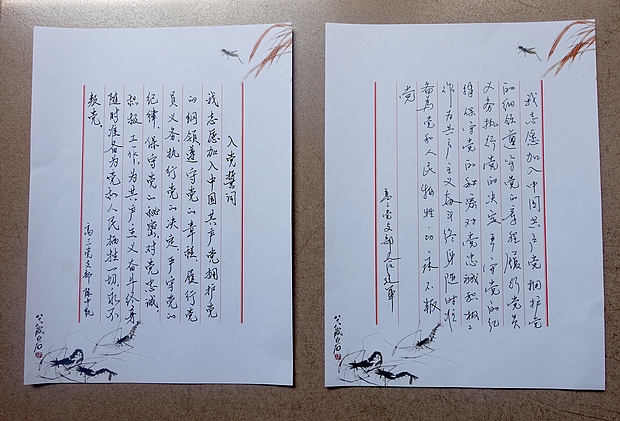 入党誓词
我志愿加入中国共产党拥护党
的纲领遵守党的章程履行党
员义务执行党的决定,严守党的
纪律,保守党的秘密对党忠诚。
积极工作,为共产主义奋斗终身
随时准备为党和人民牺牲一切,永不
叛党。
高三党支部
白石
我志愿加入中国共产党拥护党
的纲领遵守党的章程履行党员
义务执行党的决定严守党的纪
律保守党的秘密对党忠诚积极工
作为共产主义奋斗终身随时准
备为党和人民牺牲一切永不叛
党
党支部
白石